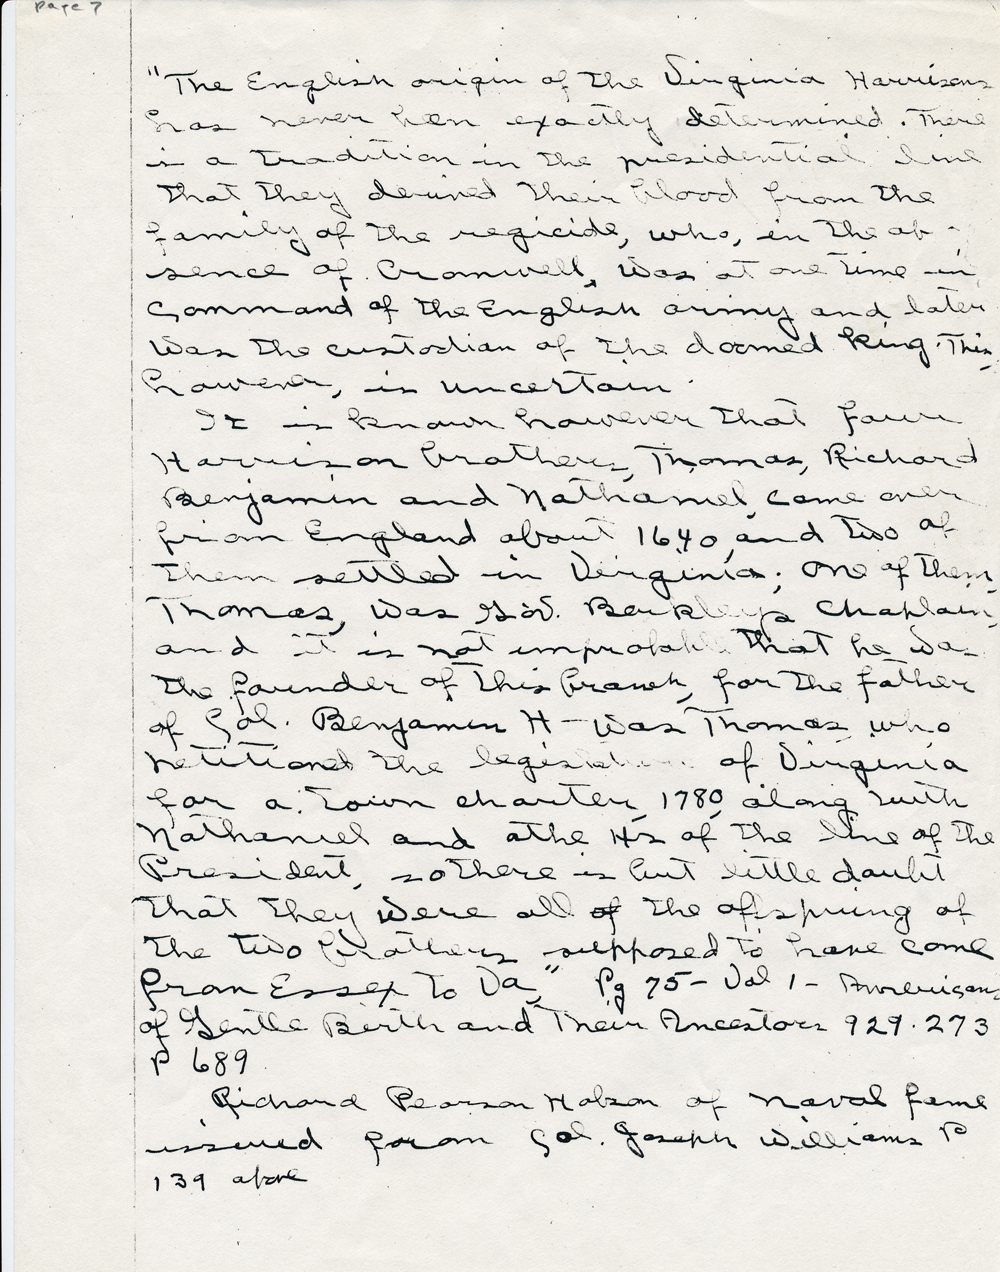 Page 7
"The English origin of the Virginia Harrisons
has never been exactly determined. There
is a tradition in the presidential line
that they derived their blood from the
family of the regicide, who, in the ab-
sence of Cromwell, was at one time in
command of the English army and later
was the custodian of the doomed king. This,
however, is uncertain.
It is known however that four
Harrison brothers, Thomas, Richard
Benjamin and Nathaniel, came over
from England about 1640, and two of
them settled in Virginia; one of them,
Thomas, was Gov. Berkley's chaplain,
and it is not improbable that he was
the founder of this branch, for the father
of Col. Benjamin H- was Thomas, who
petitioned the legislature of Virginia
for a town charter, 1780, along with
Nathaniel and othe Hs of the line of the
President, so there is but little doubt
that they were all of the offspring of
the two brothers supposed to have come
from Essex to Va," Pg 75- Vol 1- Americans
of Gentle Birth and Their Ancestors 929.273
P 689
Richard Pearson Hobson of naval fame
issued from Col. Joseph Williams P
139 above